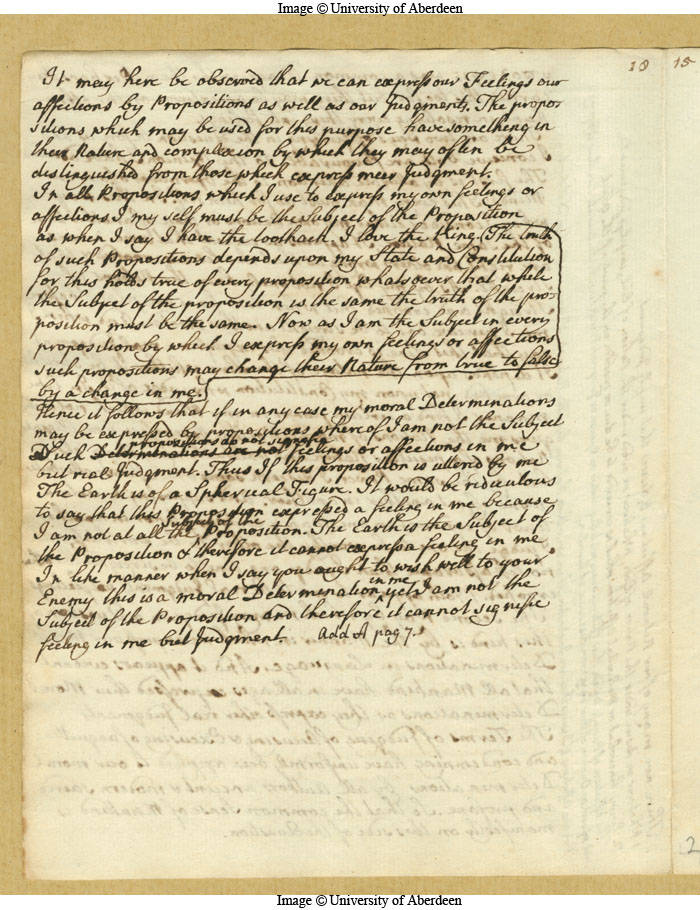 Image © University of Aberdeen
10 15
It may here be observed that we can express our Feelings our
affections by Propositions as well as our Judgments. The propo
sitions which may be used for this purpose have something in
their Nature and complexion by which they may often be
distinguished from those which express meer Judgment.
In all Propositions which I use to express my own feelings or
affections I my self must be the Subject of the Proposition
as when I say I have the toothach. I love the King. (The truth
of such Propositions depends upon my State and Constitution
for this holds true of every proposition whatsoever that while
the Subject of the proposition is the same the truth of the pro-
position must be the same. Now as I am the Subject in every
proposition by which I express my own feelings or affections
such propositions may change their Nature from true to false
by a change in me.)
Hence it follows that if in any case my moral Determinations
may be expressed by propositions where of I am not the Subject
propositions do not signifie
Such Determinations are not feelings or affections in me
but real Judgment. Thus If this proposition is uttered by me
The Earth is of a Spherical Figure. It would be ridiculous
to say that this Proposition expressed a feeling in me because
Subject of the
I am not at all the Proposition. The Earth is the Subject of
the Proposition & therefore it cannot express a feeling in me
In like manner when I say you ought to wish well to your
in me
Enemy this is a moral Determination yet I am not the
Subject of the Proposition and therefore it cannot signifie
feeling in me but Judgment. Add A pag 7.
2
Image © University of Aberdeen